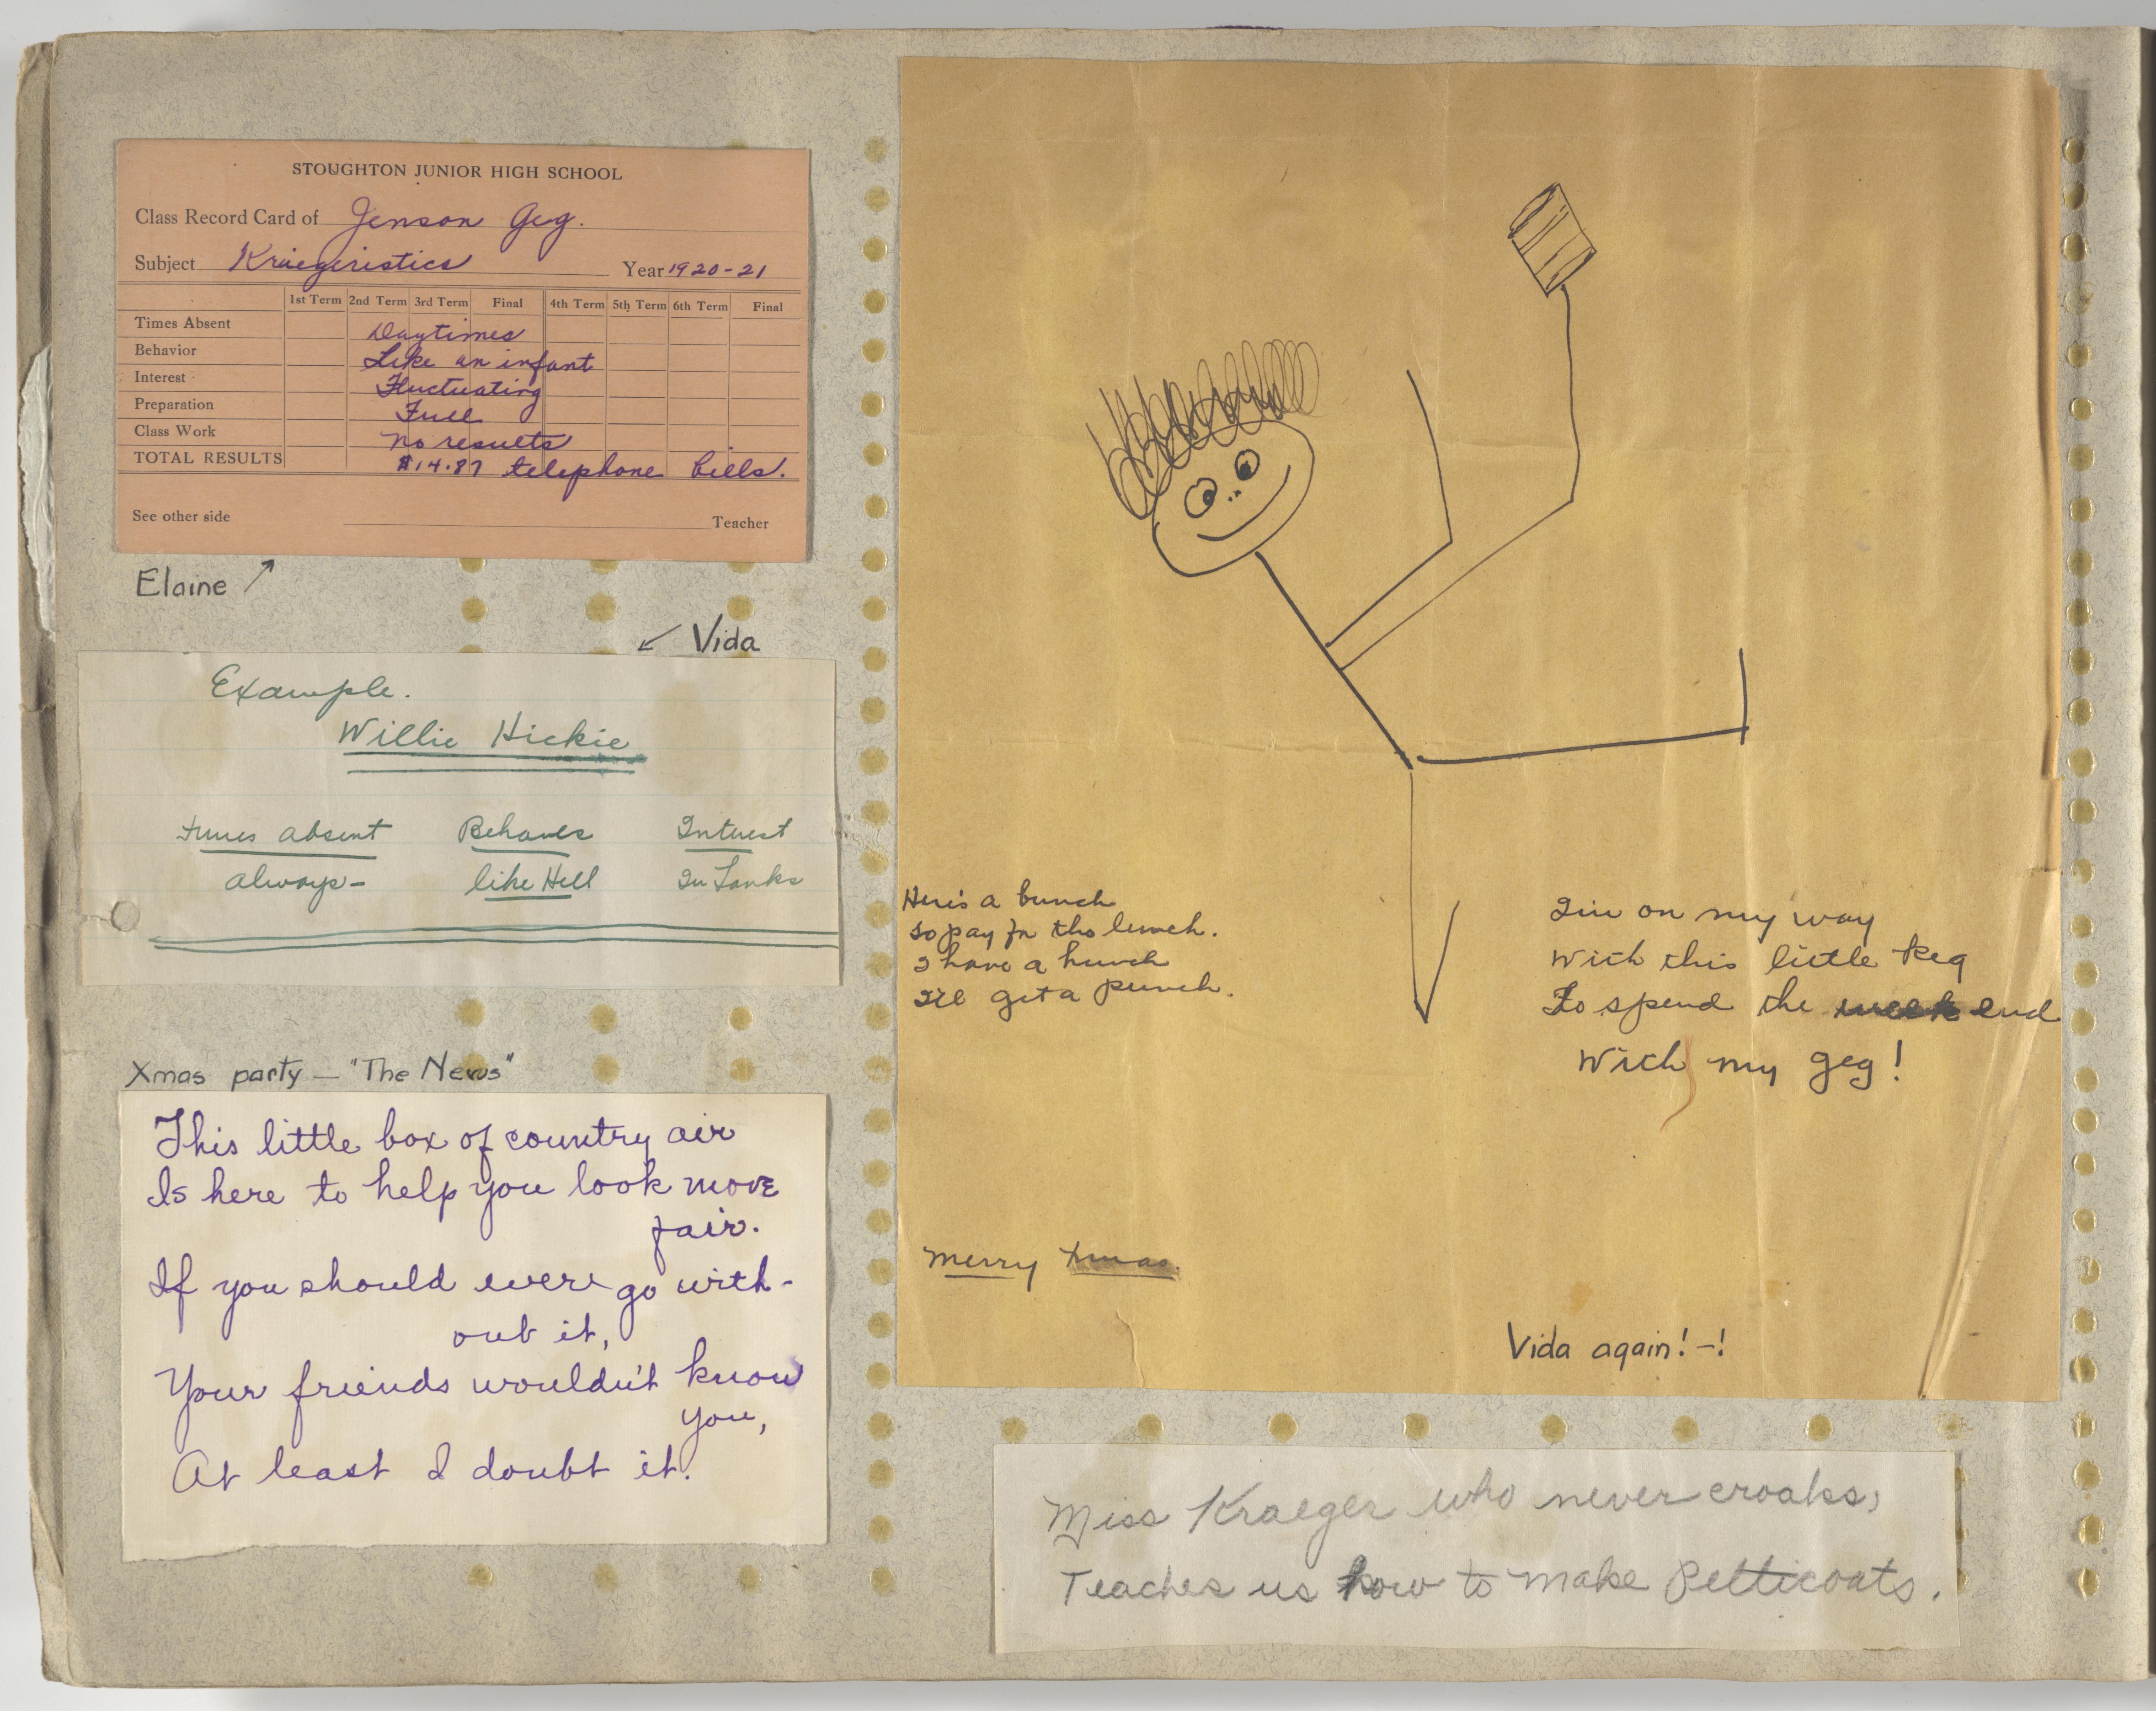 STOUGHTON JUNIOR HIGH SCHOOL
Class Record Card of Jenson Geg.
Subject Kraegeristics Year 1920-21
1st Term 2nd Term 3rd Term Final 4th Term 5th Term 6th Term Final
Times Absent Daytimes
Behavior Like an infant
Interest Fluctuating
Preparation Full
Class Work No results
TOTAL RESULTS $14.87 telephone bills.
See other side Teacher
Elaine
Vida
Example.
Willie Hickie
times absent Behaves Interest
always- like Hell In Tanks
Xmas party - "The News"
This little box of country air
Is here to help you look more
fair.
If you should ever go with-
out it,
Your friends wouldn't know
you,
At least I doubt it.
Here's a bunch
So pay for the lunch.
I have a hunch
I'll get a punch.
I'm on my way
With this little keg
To spend the week end
With my geg!
Merry Xmas.
Vida again!-!
Miss Kraeger who never croaks,
Teaches us how to make Petticoats.